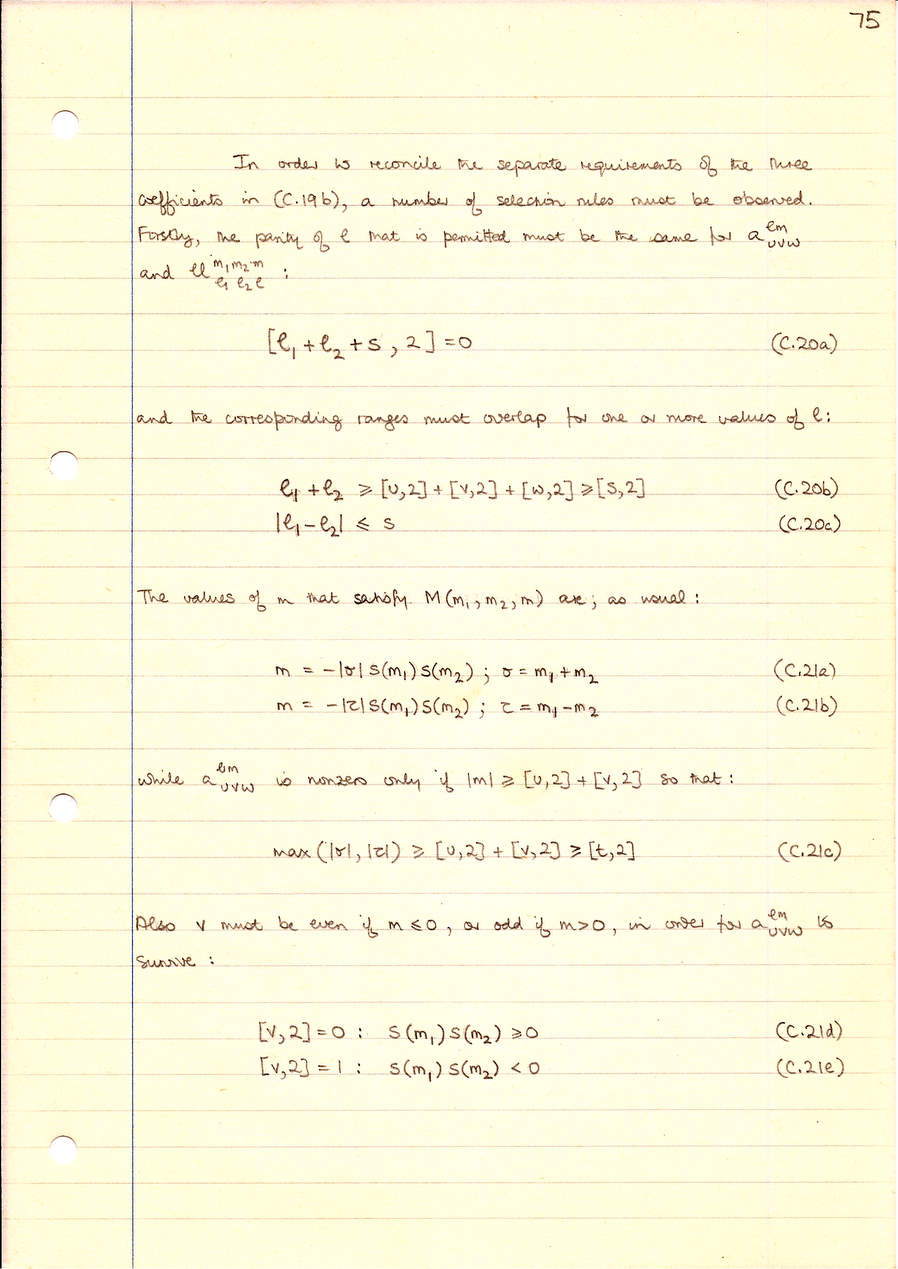 75
In order to reconcile the separate requirements of the three
coefficients in (C.19b), a number of selection rules must be observed.
Firstly, the parity of ℓ that is permitted must be the same for a^{ℓm}_{UVW}
and 𝓊^{m₁ m₂ m}_{ℓ₁ ℓ₂ ℓ} :
[ℓ₁ + ℓ₂ + S , 2] = 0 (C.20a)
and the corresponding ranges must overlap for one or more values of ℓ:
ℓ₁ + ℓ₂ ⩾ [U,2] + [V,2] + [W,2] ⩾ [S,2] (C.20b)
|ℓ₁ – ℓ₂| ⩽ S (C.20c)
The values of m that satisfy M(m₁, m₂, m) are, as usual:
m = –|σ| S(m₁) S(m₂) ; σ = m₁ + m₂ (C.21a)
m = –|τ| S(m₁) S(m₂) ; τ = m₁ – m₂ (C.21b)
while a^{ℓm}_{UVW} is nonzero only if |m| ⩾ [U,2] + [V,2] so that:
max (|σ|, |τ|) ⩾ [U,2] + [V,2] ⩾ [t,2] (C.21c)
Also V must be even if m ⩽ 0, or odd if m > 0, in order for a^{ℓm}_{UVW} to
survive :
[V,2] = 0 : S(m₁) S(m₂) ⩾ 0 (C.21d)
[V,2] = 1 : S(m₁) S(m₂) < 0 (C.21e)